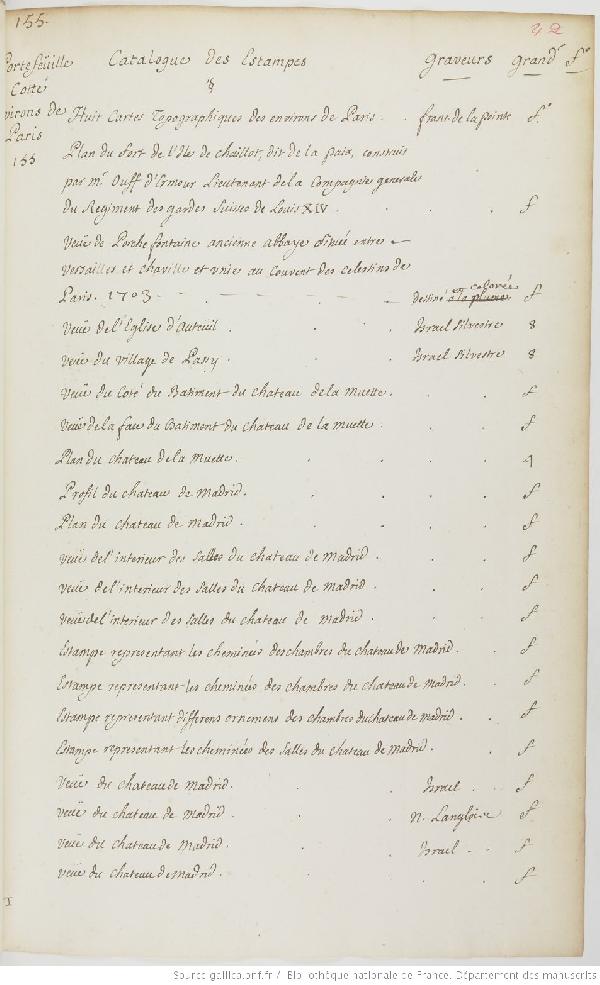 155.
42
Portefeüille Catalogue des Estampes Graveurs Grandr fo
Cotté 8
environs de
Paris
155
Huit Cartes Topographiques des environs de Paris . . frant. de la pointe fo.
Plan du fort de l'Isle de chaillot, dit de la paix, construit
par mr. Ouff d'Ermour Lieutenant de la Compagnie generale
du Regiment des gardes Suisses de Louis XIV . . . f
Veüe de Porche fontaine ancienne abbaye située entre
Versailles et chaville et unie au couvent des celestins de
Paris. 1703 - - - - - dessiné et colorée a la plume f
Veüe de l'Eglise d'Auteuil . . . Israel Silvestre 8
veüe du village de Passy . . . Israel Silvestre 8
Veüe du Coté du Batiment du chateau de la muette . . . f
Veüe de la face du Batiment du chateau de la muette . . . f
Plan du chateau de la muette . . . . 4
Profil du chateau de madrid . . . . f
Plan du chateau de madrid . . . . f
Veüe de l'interieur des salles du chateau de madrid . . . f
veüe de l'interieur des salles du chateau de madrid . . f
veüe de l'interieur des salles du chateau de madrid . . f
Estampe representant les cheminées des chambres du chateau de madrid . . f
Estampe representant les cheminées des chambres du chateau de madrid . . f
Estampe representant differens ornemens des chambres du chateau de madrid . . f
Estampe representant les cheminées des salles du chateau de madrid . . f
Veüe du chateau de madrid . . . Israel . f
Veüe du chateau de madrid . . . n. Langlois f
veüe du chateau de madrid . . . Israel . . f
veüe du chateau de madrid . . . . f
Source gallica.bnf.fr / Bibliothèque nationale de France. Département des manuscrits